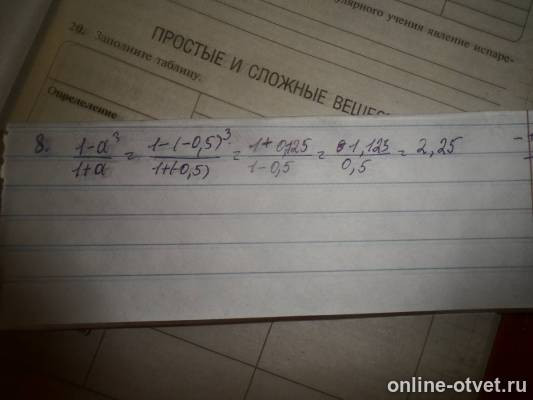 улярного учения явление испаре-
20. Заполните таблицу.
ПРОСТЫЕ И СЛОЖНЫЕ ВЕЩЕС
Определение
8. (1-a³)/(1+a) = (1-(-0,5)³)/(1+(-0,5)) = (1+0,125)/(1-0,5) = 1,125/0,5 = 2,25
online-otvet.ru